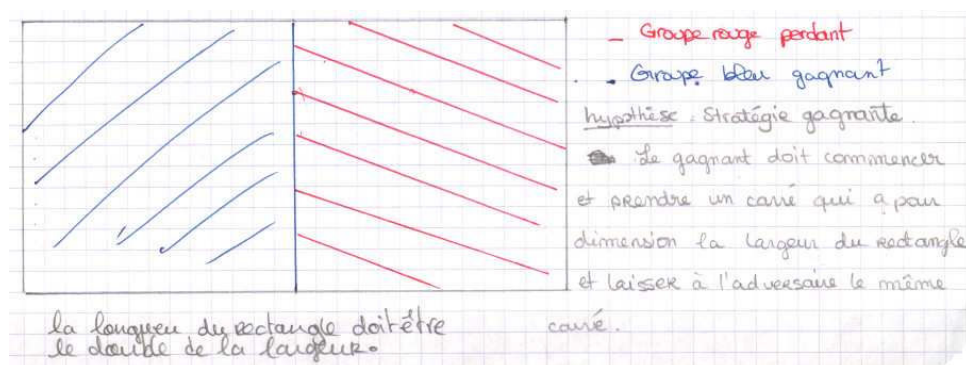 - Groupe rouge perdant
- Groupe bleu gagnant
hypothèse : Stratégie gagnante.
Le gagnant doit commencer
et prendre un carré qui a pour
dimension la largeur du rectangle
et laisser à l'adversaire le même
carré.
la longueur du rectangle doit être
le double de la largeur.